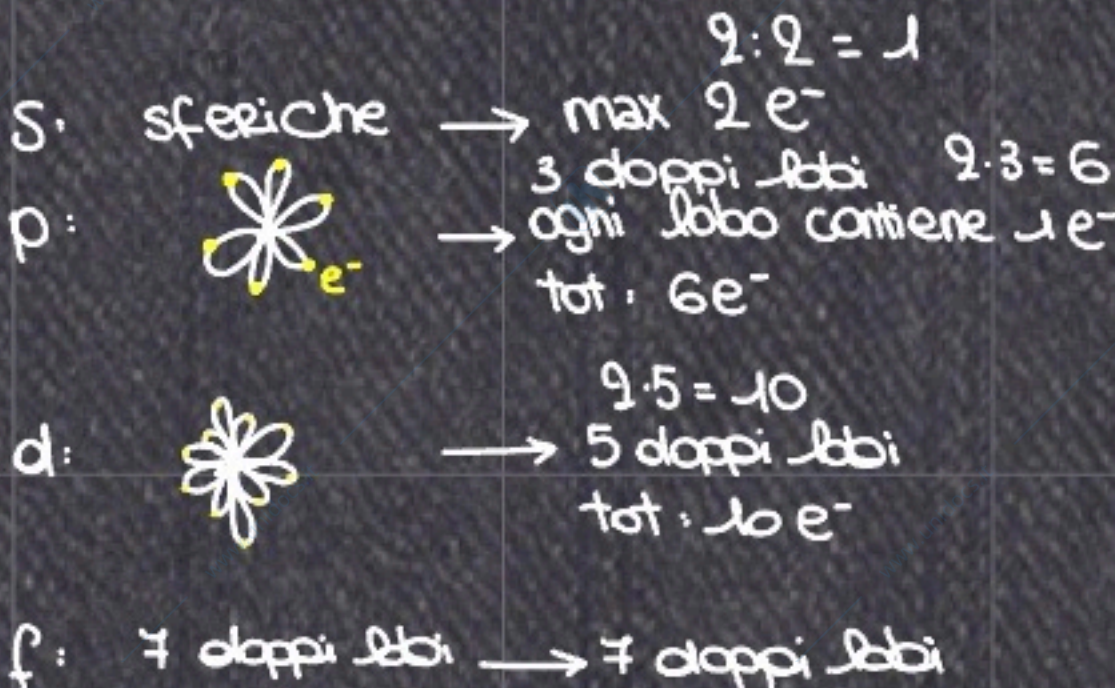 2:2 = 1
s: sferiche → max 2 e⁻
3 doppi lobi 2·3=6
p: → ogni lobo contiene 1 e⁻
e⁻
tot: 6e⁻
2·5=10
d: → 5 doppi lobi
tot: 10 e⁻
f: 7 doppi lobi → 7 doppi lobi